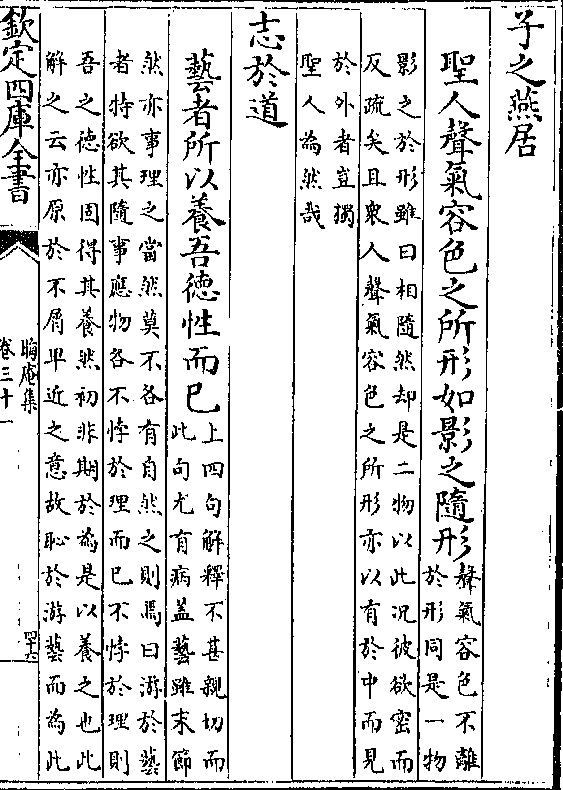 子之燕居
聖人聲氣容色之所形如影之隨形
聲氣容色不離
於形同是一物
影之於形雖曰相隨然却是二物以此况彼欲密而
反疏矣且衆人聲氣容色之所形亦以有於中而見
於外者豈獨
聖人為然哉
志於道
藝者所以養吾徳性而已
上四句解釋不甚親切而
此句尤有病盖藝雖末節
然亦事理之當然莫不各有自然之則焉曰游於藝
者特欲其隨事應物各不悖於理而已不悖於理則
吾之徳性固得其養然初非期於為是以養之也此
解之云亦原於不屑卑近之意故恥於游藝而為此
欽定四庫全書
晦庵集
卷三十一
四十六